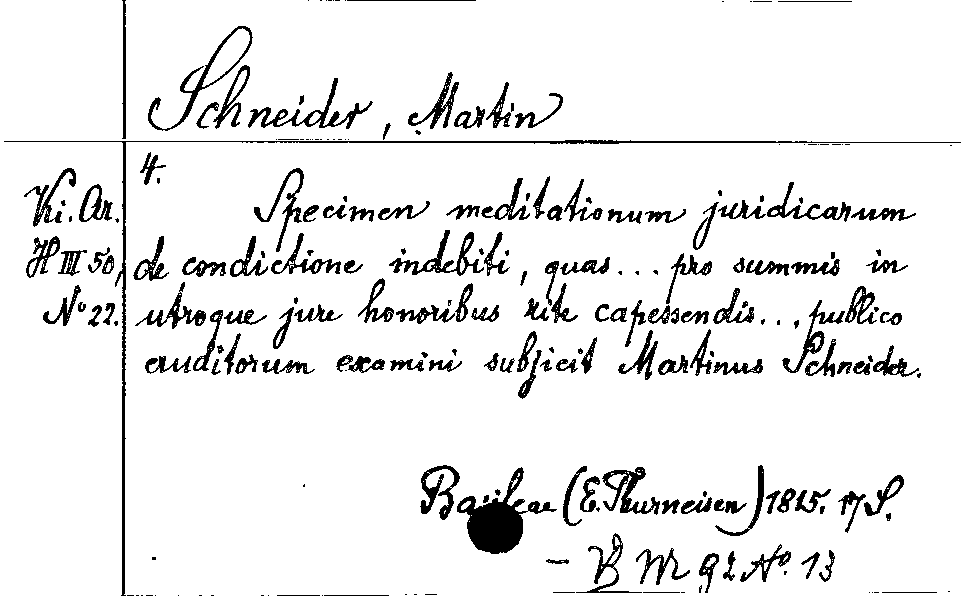 Schneider, Martin
4.
Ki. Ar.
H III 50,
No 22.
Specimen meditationum juridicarum
de condictione indebiti, quas... pro summis in
utroque jure honoribus rite capessendis... publico
eruditorum examini subjicit Martinus Schneider.
Basileae (E. Thurneisen) 1815. 17 S.
– No. 13